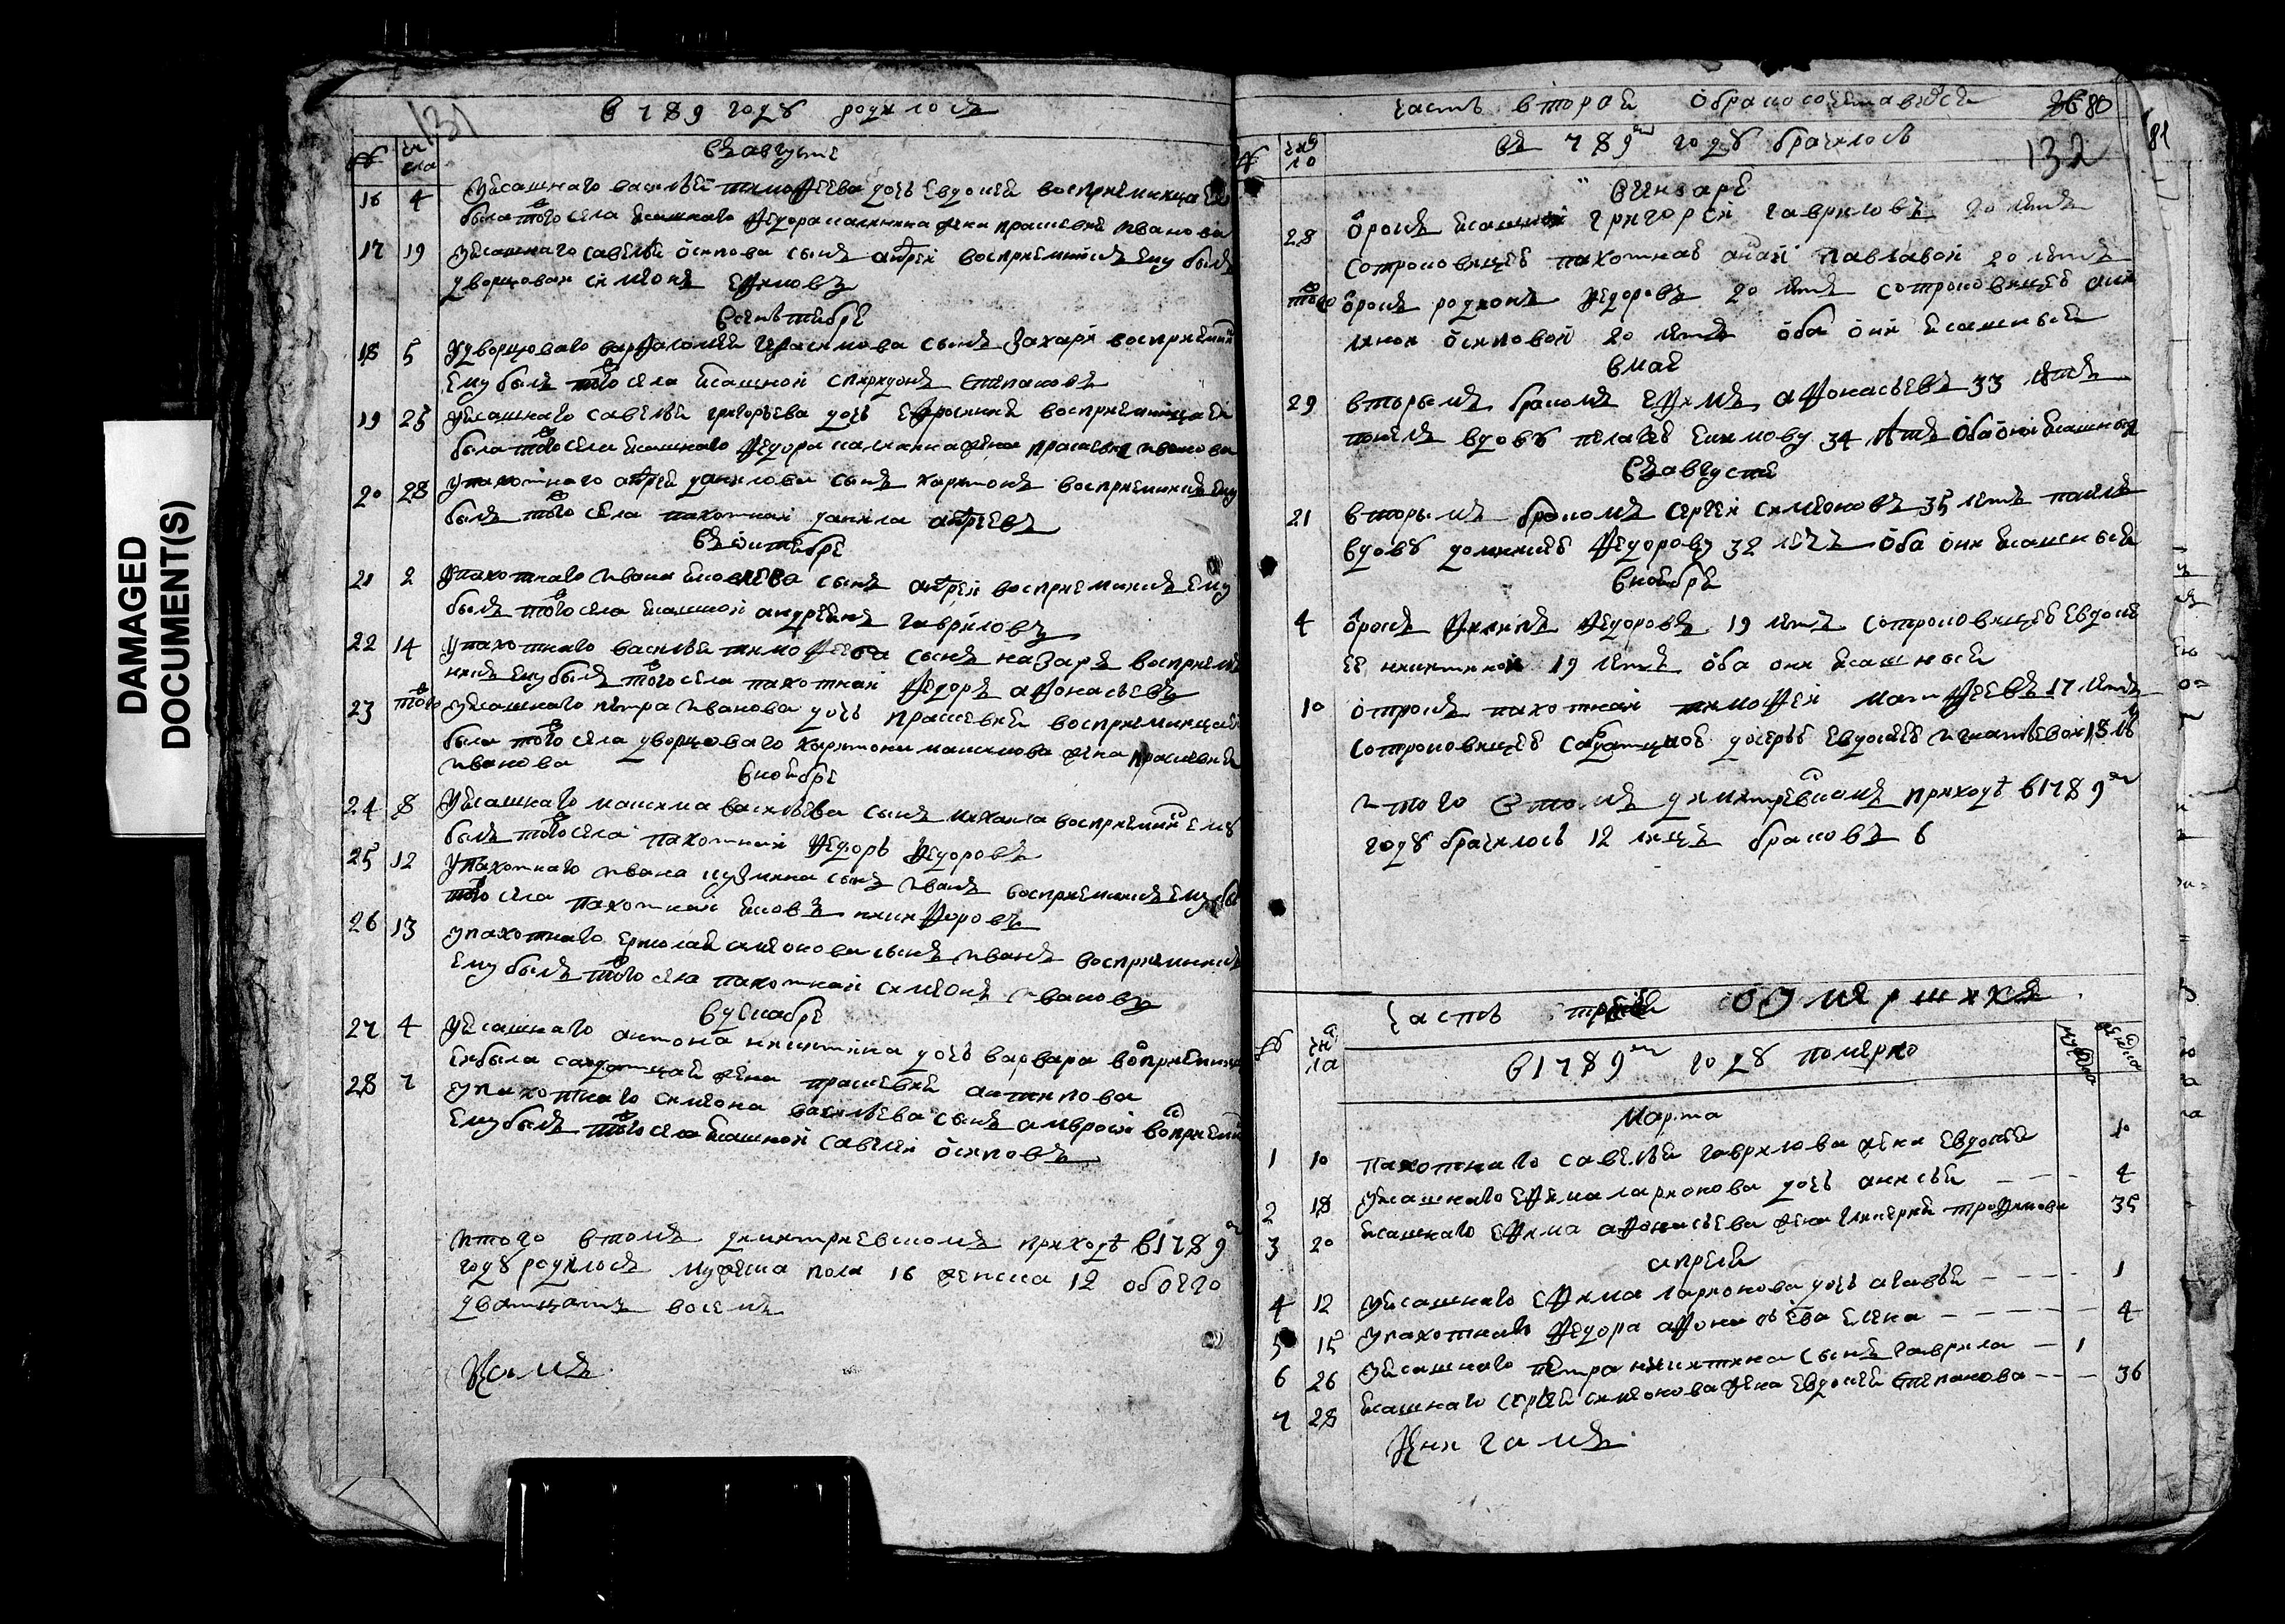 DAMAGED
DOCUMENT(S)
131
в 789 году родилось
№ числа
въ августе
16 4 У ясашнаго василья тимофеева дочь Евдокея восприемница Ею
была того села ясашнаго Федора калинина жена прасковья иванова
17 19 У ясашнаго савелья осипова сынъ андрей восприемникъ Ему былъ
дворцовои симеонъ Ефимовъ
в сентебре
18 5 У дворцоваго варфаломея герасимова сынъ Захаръ восприемни
Ему былъ того села ясашной спиридонъ степановъ
19 25 У ясашнаго савелья григорьева дочь Ефросинья восприемница Ей
была того села ясашнаго Федора калинина жена прасковья иванова
20 28 У пахотнаго андрея данилова сынъ харитонъ восприемникъ Ему
былъ того села пахотнай данила андреевъ
въ октебре
21 2 У пахотнаго ивана яковлева сынъ андрей восприемникъ Ему
былъ того села ясашной андреянъ гавриловъ
22 14 У пахотнаго василья тимофеева сынъ назаръ восприем
никъ Ему былъ того села пахотнай Федоръ афонасьевъ
23 того У ясашнаго петра иванова дочь прасковья восприемница Ей
была того села дворцоваго харитона максимова жена прасковья
иванова
в ноебре
24 8 У ясашнаго максима васильева сынъ михаила восприемникъ Ему
былъ того села пахотнай Федоръ Федоровъ
25 12 У пахотнаго ивана кузмина сынъ иванъ восприемникъ Ему бы
того села пахотнай яковъ никифоровъ
26 13 У пахотнаго ермолая симеонова сынъ иванъ восприемникъ
Ему былъ того села пахотнай симеонъ ивановъ
в декабре
27 4 У ясашнаго антона никитина дочь варвара восприемница
Ей была салдацкая жена прасковья антипова
28 7 У пахотнаго симеона васильева сынъ амвросий восприемни
Ему былъ того села ясашной савелей осиповъ
итого в томъ димитриевскомъ приходѣ в 1789м
году родилось мужеска пола 16 женска 12 обоего
дватцать восемь
часть вторая о бракосочетавшихся 80
№ число въ 789м году брачилось 132 81
в генваре
28 отрокъ ясашной григорей гавриловъ 20 летъ
с отроковицею пахотною анной павлавой 20 летъ
того отрокъ родионъ Федоровъ 20 летъ с отроковицею аки
линой осиповой 20 летъ оба они ясашныя
в мае
29 вторымъ бракомъ Ефимъ афонасьевъ 33 летъ
понелъ вдову пелагею Екимову 34 летъ оба они ясашныя
въ августе
21 вторымъ бракомъ сергей симеоновъ 35 летъ понелъ
вдову доминкею Федорову 32 летъ оба они ясашныя
в ноебре
4 отрокъ Филипъ Федоровъ 19 летъ с отроковицею Евдоки
ей никитиной 19 летъ оба они ясашныя
10 отрокъ пахотнай тимофей матфеевъ 17 летъ
с отроковицею салдатцкою дочерью Евдокеею игнатьевой 18 ле
итого в томъ димитревскомъ приходѣ в 1789м
году брачилось 12 лицъ браковъ 6
часть третия о умершихъ
№ числа в 1789м году померло мужеска женска
марта
1 10 пахотнаго савелья гаврилова жена Евдокея 10
2 18 У ясашнаго Ефима ларионова дочь анисья 4
3 20 ясашнаго Ефима афонасьева жена гликерья трофимова 35
апреля
4 12 У ясашнаго Ефима ларионова дочь агавья 1
5 15 У пахотнаго Федора афонасьева Елена 4
6 26 У ясашнаго петра никитина сынъ гаврила 1
7 28 ясашнаго сергея симеонова жена Евдокея степанова 36